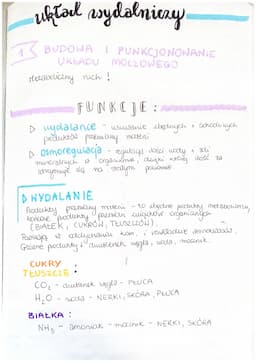 układ wydalniczy
1. BUDOWA I FUNKCJONOWANIE
UKŁADU MOCZOWEGO
ruch!
FUNKCJE:
▷ wydalanie - usuwanie zbędnych i szkodliwych
produktów przemiany materii
▷ osmoregulacja - regulacja ilości wody i soli
mineralnych w organizmie, dzięki której ilość ta
utrzymuje się na stałym poziomie
▷ WYDALANIE
Produkty przemiany materii - to zbędne produkty metabolizmu,
końcowe produkty przemian związków organicznych
(BIAŁEK, CUKRÓW, TŁUSZCZÓW).
Powstają w oddychaniu kom. i rozkładzie aminokwasów.
Główne produkty: dwutlenek węgla, woda, mocznik.
CUKRY
TŁUSZCZE:
CO₂ - dwutlenek węgla - PŁUCA
H₂O - woda - NERKI, SKÓRA, PŁUCA
BIAŁKA:
NH₃ - amoniak - mocznik - NERKI, SKÓRA